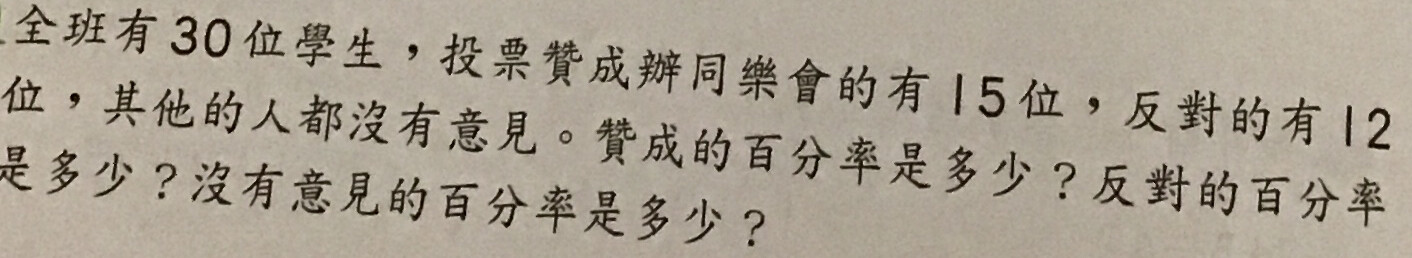 全班有30位學生，投票贊成辦同樂會的有15位，反對的有12
位，其他的人都沒有意見。贊成的百分率是多少？反對的百分率
是多少？沒有意見的百分率是多少？